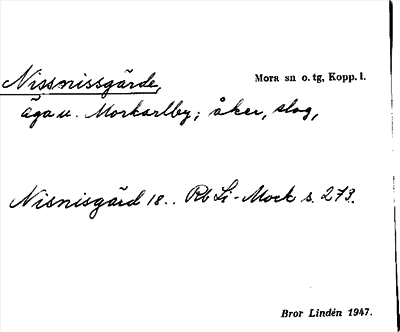 Nissnissgärde, Mora sn o. tg, Kopp. l.
äga u. Morkarlby; åker, slog,
Nisnisgärd 18.. Rb Li-Mork s. 273.
Bror Lindén 1947.